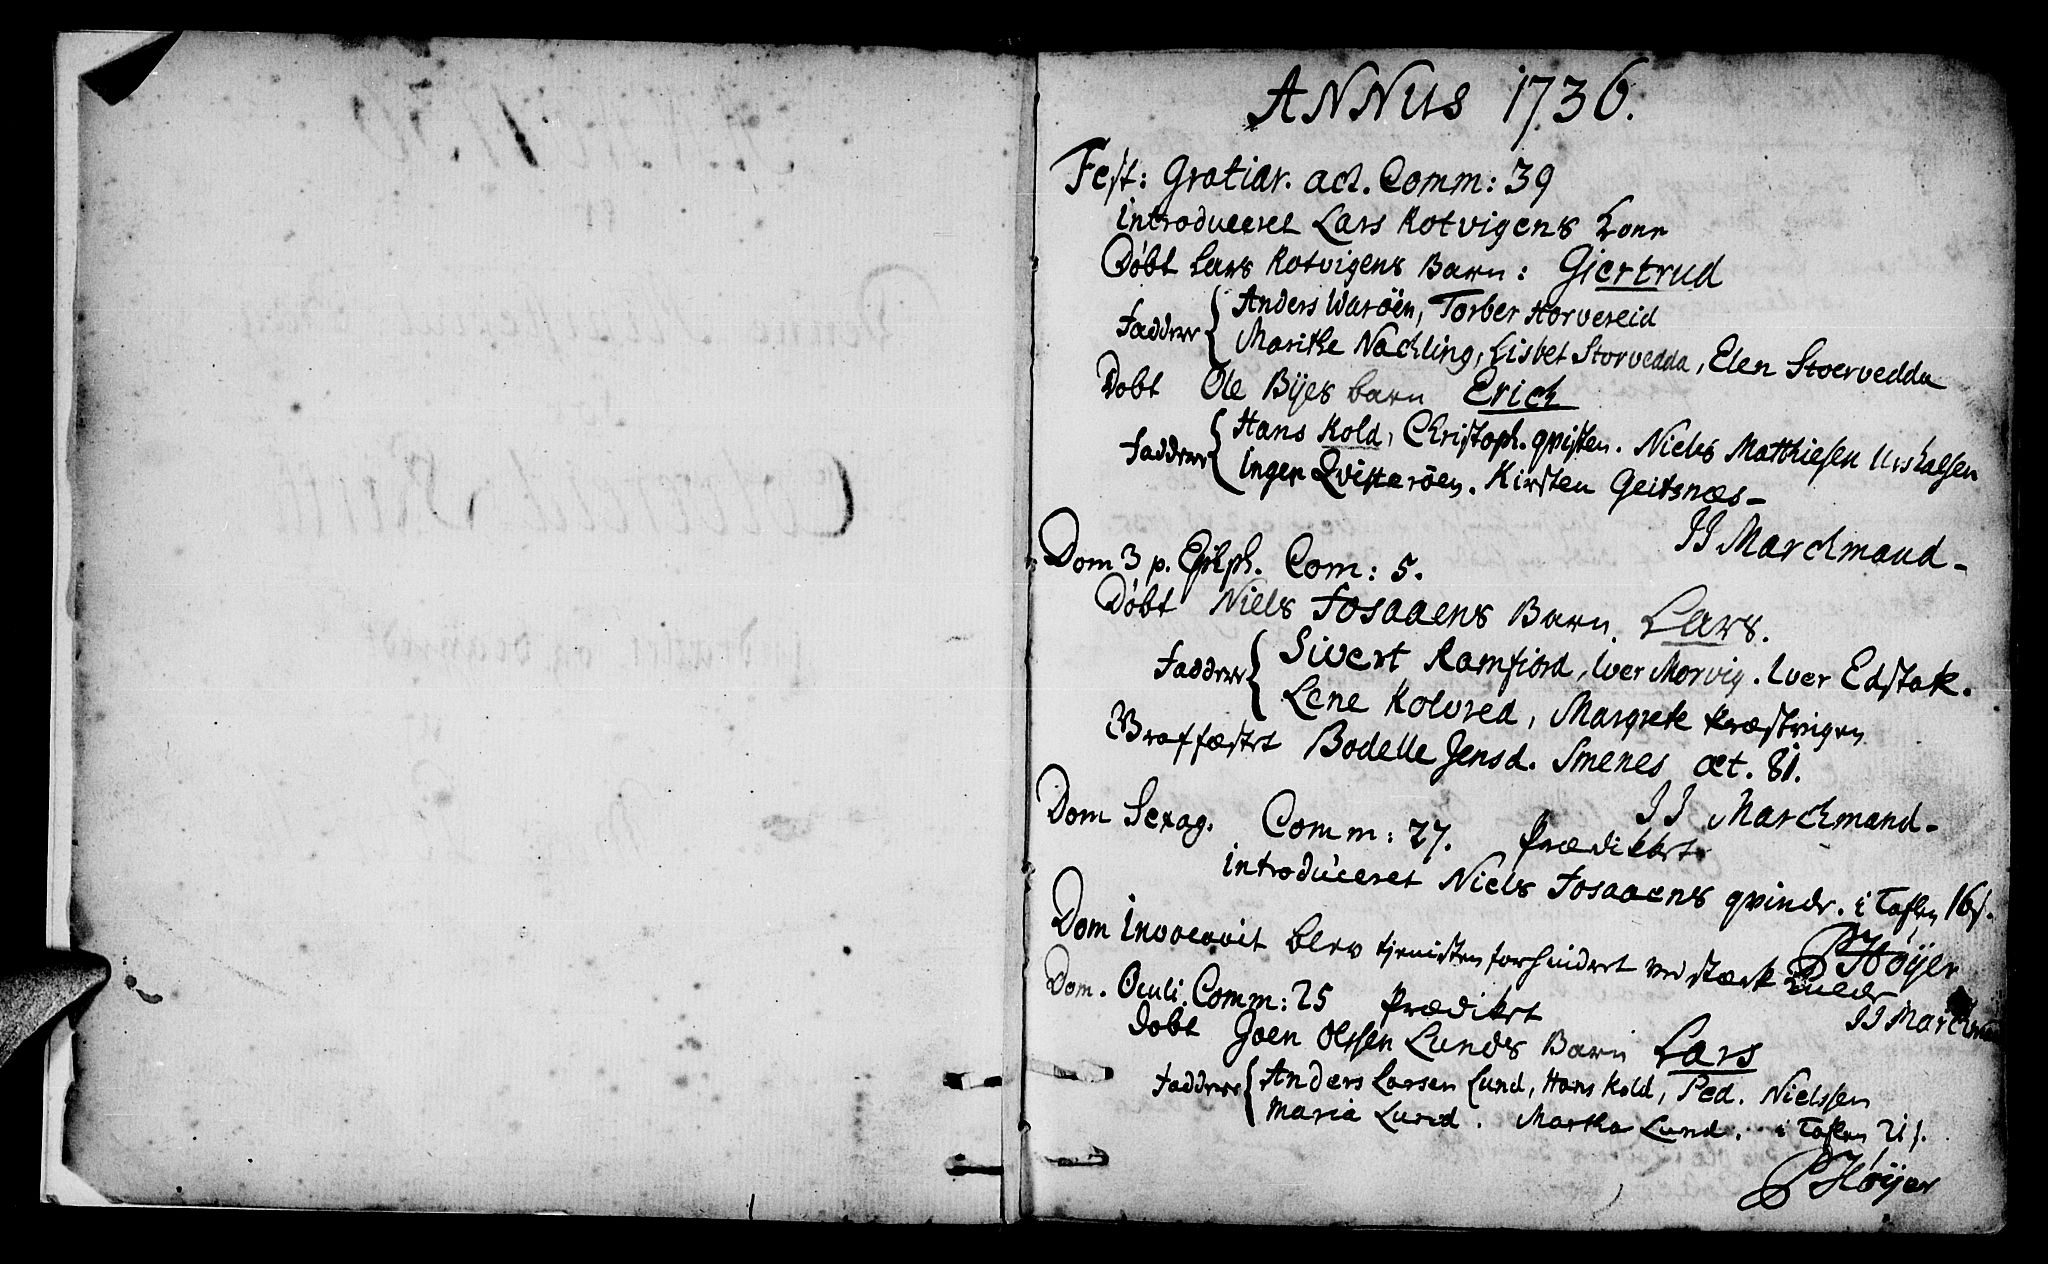 ANNUS 1736.
Fest: Gratiar. act. Comm: 39
introduceret Lars Rotvigens Kone
Döbt Lars Rotvigens Barn: Giertrud
Faddere { Anders Waröen, Torber Horvereid
Marithe Nachling, Lisbet Storvedda, Elen Stoervedda
Döbt Ole Byes barn Erich
Faddere { Hans Kold, Christoph. qvisten. Niels Matthiesen
Inger Qvisteröen. Kirsten Geitsnæs
JJ Marchmand
Dom 3 p. Epiph. Com: 5.
Döbt Niels Fosaaens Barn. Lars.
Faddere { Sivert Ramfiord, Iver Morvig. Iver Edstok.
Lene Kolvred, Margrete Præstvigen
Graffæstet Bodelle Jensd. Smenes æt. 81.
JJ Marchmand
Dom Sexag. Comm: 27. Prædiket
introduceret Niels Fosaaens qvinde. i Taflen 16 s.
PHöyer
Dom Invocavit blev tjenisten forhindret ved stærk Kulde
JJ Marchmand
Dom. Oculi. Comm: 25 Prædiket
Döbt Joen Olssen Lunds Barn Lars
Faddere { Anders Larsen Lund, Hans Kold, Ped. Nielssen
Maria Lund. Martha Lund. i Taflen 21 s.
PHöyer